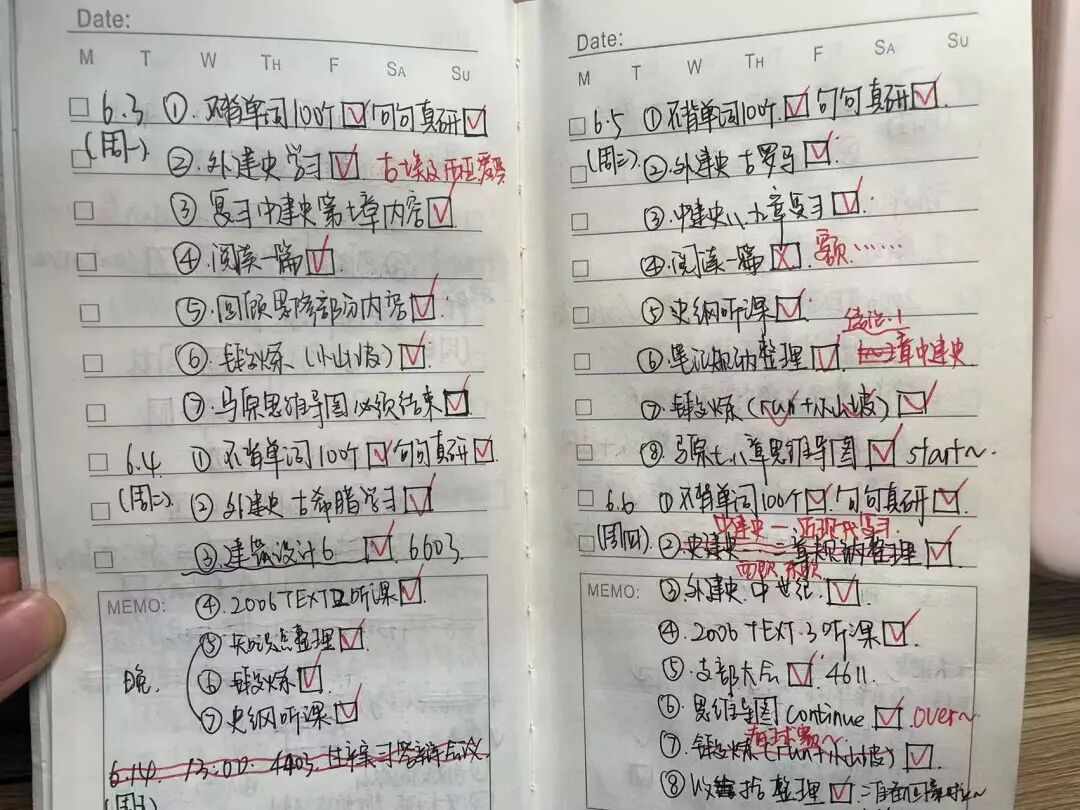 Date:
M T W TH F SA SU
6.3 ①.不背单词100个 句句真研
(周一) ②.外建史学习 古埃及 西亚 爱琴
③ 复习中建史第七章内容
④.阅读一篇
⑤.回顾思修部分内容
⑥.锻炼(小山坡)
⑦.马原思维导图必须结束
6.4 ①不背单词100个 句句真研
(周二) ②外建史 古希腊学习
③.建筑设计6 6603.
MEMO:
④.2006 TEXT 2 听课
⑤ 知识点整理
晚. ⑥ 锻炼
⑦ 史纲听课
6.14. 13:00. 4403.
Date:
M T W TH F SA SU
6.5 ①不背单词100个. 句句真研
(周三) ②.外建史 古罗马
③.中建史八、九章复习
④.阅读一篇 额……
⑤ 史纲听课
⑥.笔记归纳整理 章中建史
⑦.锻炼(run+小山坡)
⑧.马原七八章思维导图 start~
6.6 ①不背单词100个 句句真研
中建史 近现代复习
(周四) ② 整理
③外建史.中世纪.
MEMO:
④.2006 TEXT.3 听课
⑤.支部大会 4611.
⑥.思维导图 continue over~
⑦.锻炼(run+小山坡)
⑧ 整理